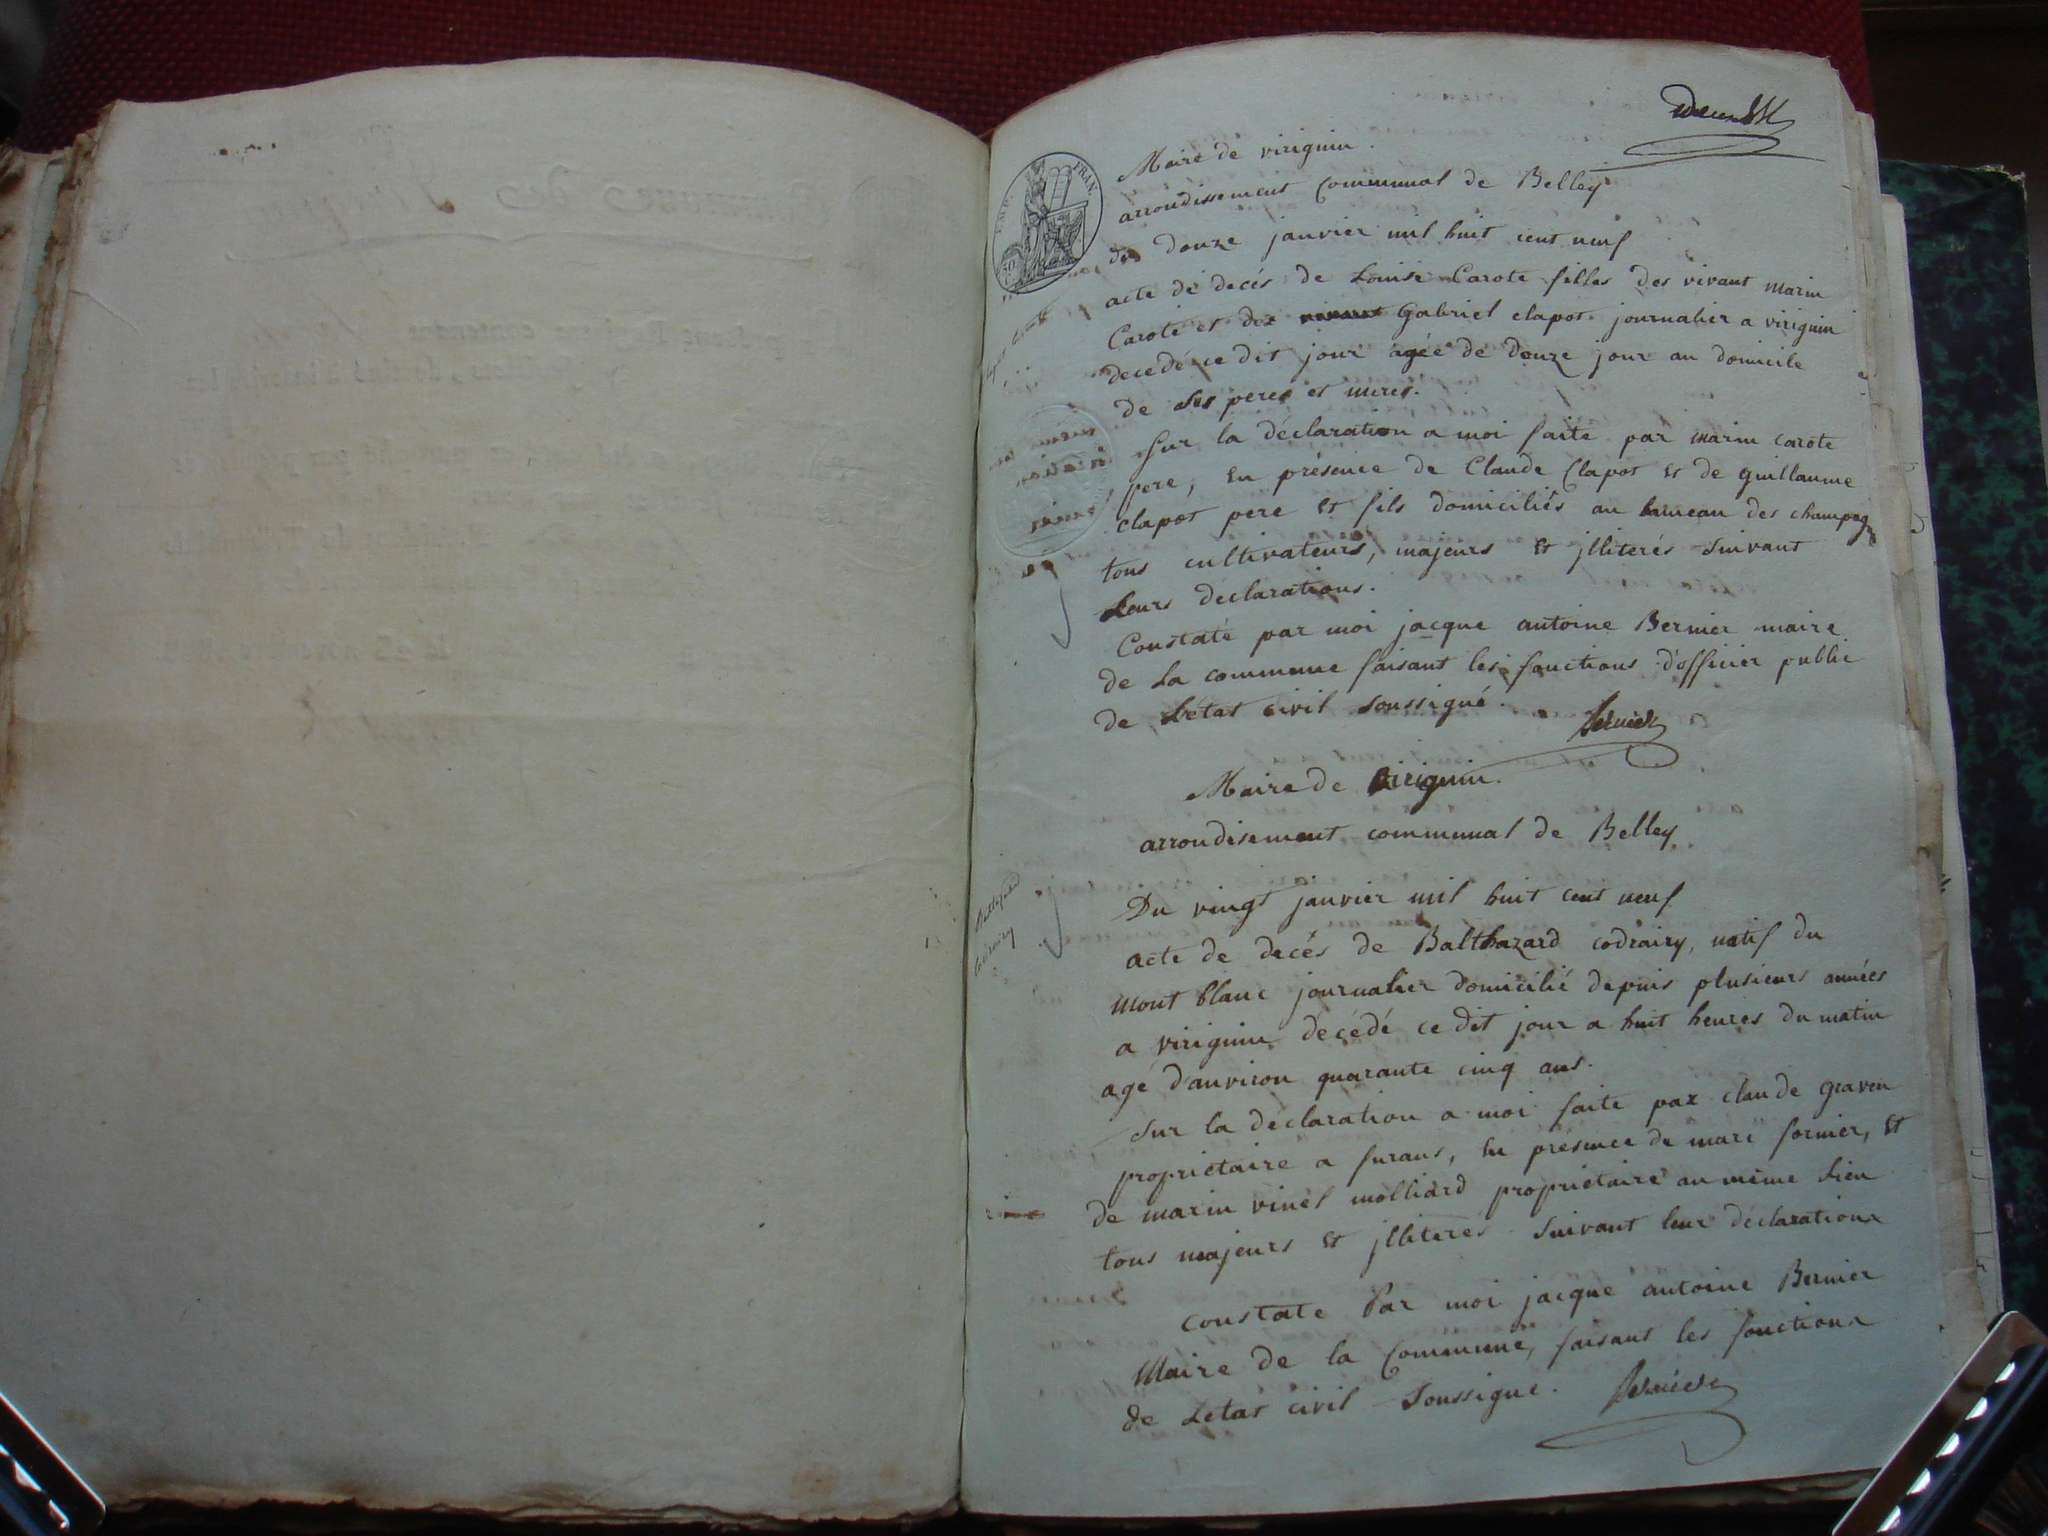 Maire de virignin.
arrondissement communal de Belley
du douze janvier mil huit cent neuf
acte de decés de Louise Carote filles des vivant marin
Carote et de Gabriel clapot journalier a virignin
decedé ce dit jour agée de douze jour au domicile
de ses peres et meres.
Sur la déclaration a moi faite par marin carote
pere, en présence de Claude Clapot et de guillaume
clapot pere et fils domiciliés au hameau des champag
tous cultivateurs, majeurs et jlliterés suivant
Leurs déclarations.
Constaté par moi jacque antoine Bernier maire
de La commune faisant les fonctions d'officier public
de Letat civil soussigné.
Bernier
Maire de virignin.
arrondisement communal de Belley
Du vingt janvier mil huit cent neuf
acte de decés de Balthazard codrairy, natif du
mont blanc journalier domicilié depuis plusieurs années
a virignin décédé ce dit jour a huit heures du matin
agé d'anviron quarante cinq ans.
Sur la déclaration a moi faite par claude graven
propriétaire a furans, en présence de marc fornier, et
de marin vinet molliard propriétaire au même Lieu
tous majeurs et jlliterés suivant leur déclaration
constate Par moi jacque antoine Bernier
Maire de la Commune, faisant les fonctions
de Letat civil Soussigne.
Bernier
IMP. FRAN.